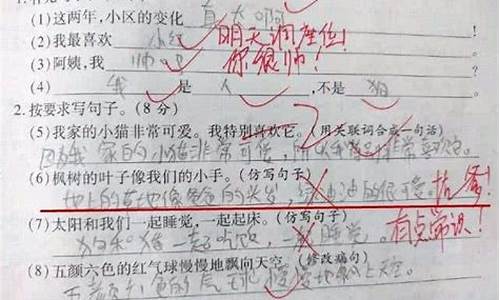 (1)这两年,小区的变化 真大啊
(2)我最喜欢 小红 明天调座位!
(3)阿姨,我 帅吧 你很帅!
(4) 我 是 人 ,不是 狗
2.按要求写句子。(8分)
(5)我家的小猫非常可爱。我特别喜欢它。(用关联词合成一句话)
因为我家的小猫非常可爱,所以我 非常喜欢它。
(6)枫树的叶子像我们的小手。(仿写句子)
地上的草地像爸爸的头发, 的很可爱。
(7)太阳和我们一起睡觉,一起起床。(仿写句子) 有点常识!
狗和猪一起吃饭,一起睡觉。
(8)五颜六色的红气球慢慢地飘向天空。(修改病句)
五颜六色的气球慢慢地飘上天空。